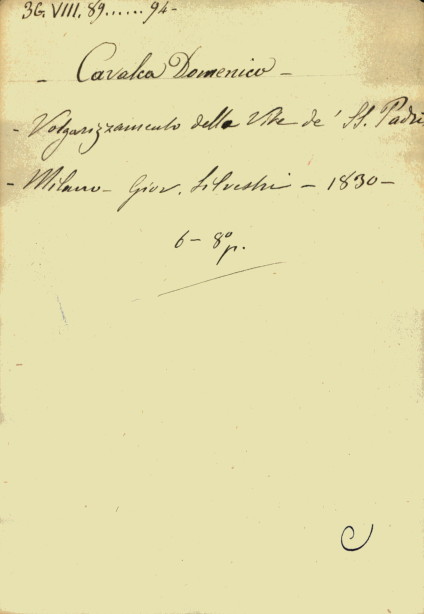 36.VIII.89......94-
- Cavalca Domenico -
- Volgarizzamento delle Vite de' SS. Padri
- Milano - Giov. Silvestri - 1830 -
6 - 8º p.
C